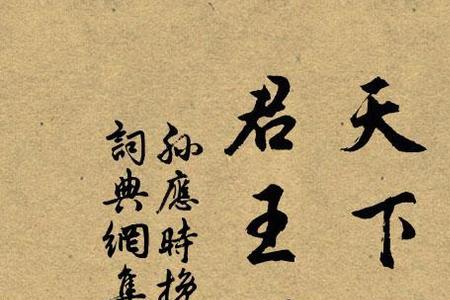 天下
君王
孙應時挽
詞典網集